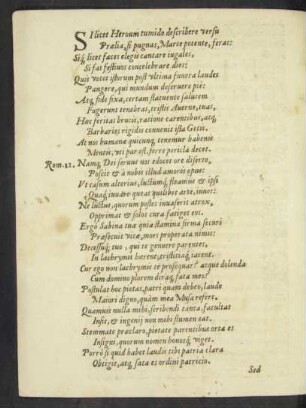 SI licet Heroum tumido describere versu
Prælia, si pugnas, Marte petente, feras:
Siq́; licet faces elegis cantare iugales,
Si fas festiuos concelebrare dies:
Quis vetet istorum post vltima funera laudes
Pangere, qui mundum deseruere pij:
Atq; fide fixa, certam statuente salutem
Fugerunt tenebras, tristis Auerne, tuas,
Hoc feritas brucis, ratione carentibus, atq;
Barbaries rigidis conuenit ista Getis.
At nos humana quicunq; tenemur habenis
Mentis, vti par est, ferre pericla decet.
Rom. 12. Namq; Dei seruus nos edocet ore diserto,
Poscit & à nobis illud amoris opus:
Vt casum alterius, luctumq́; fleamus & ipsi
Quaq́; iuuare queas quilibet arte, iuuet:
Ne luctus, quorum postes inuaserit atrox,
Opprimat & solos cura fatiget eos.
Ergo Sabina tua quia stamina firma securi
Præsecuit vitæ, mors properata nimis:
Decessuq́; tuo, qui te genuere parentes,
In lachrymis hærent, tristitiaq́; tacent.
Cur ego non lachrymis te prosequar? atque dolenda
Cum domino plorem diraq́; fata meo?
Postulat hoc pietas, patri quam debeo, laude
Maiori digno, quàm mea Musa refert.
Quamuis nulla mihi scribendi tanta facultas
Insit, & ingenij non mihi flumen eat.
Stemmate præclaro, pietate parentibus orta es
Insignis, quorum nomen honosq́; viget.
Porrò si quid habet laudis tibi patria clara
Obtigit, atq; fata es ordini patricio.
Sed